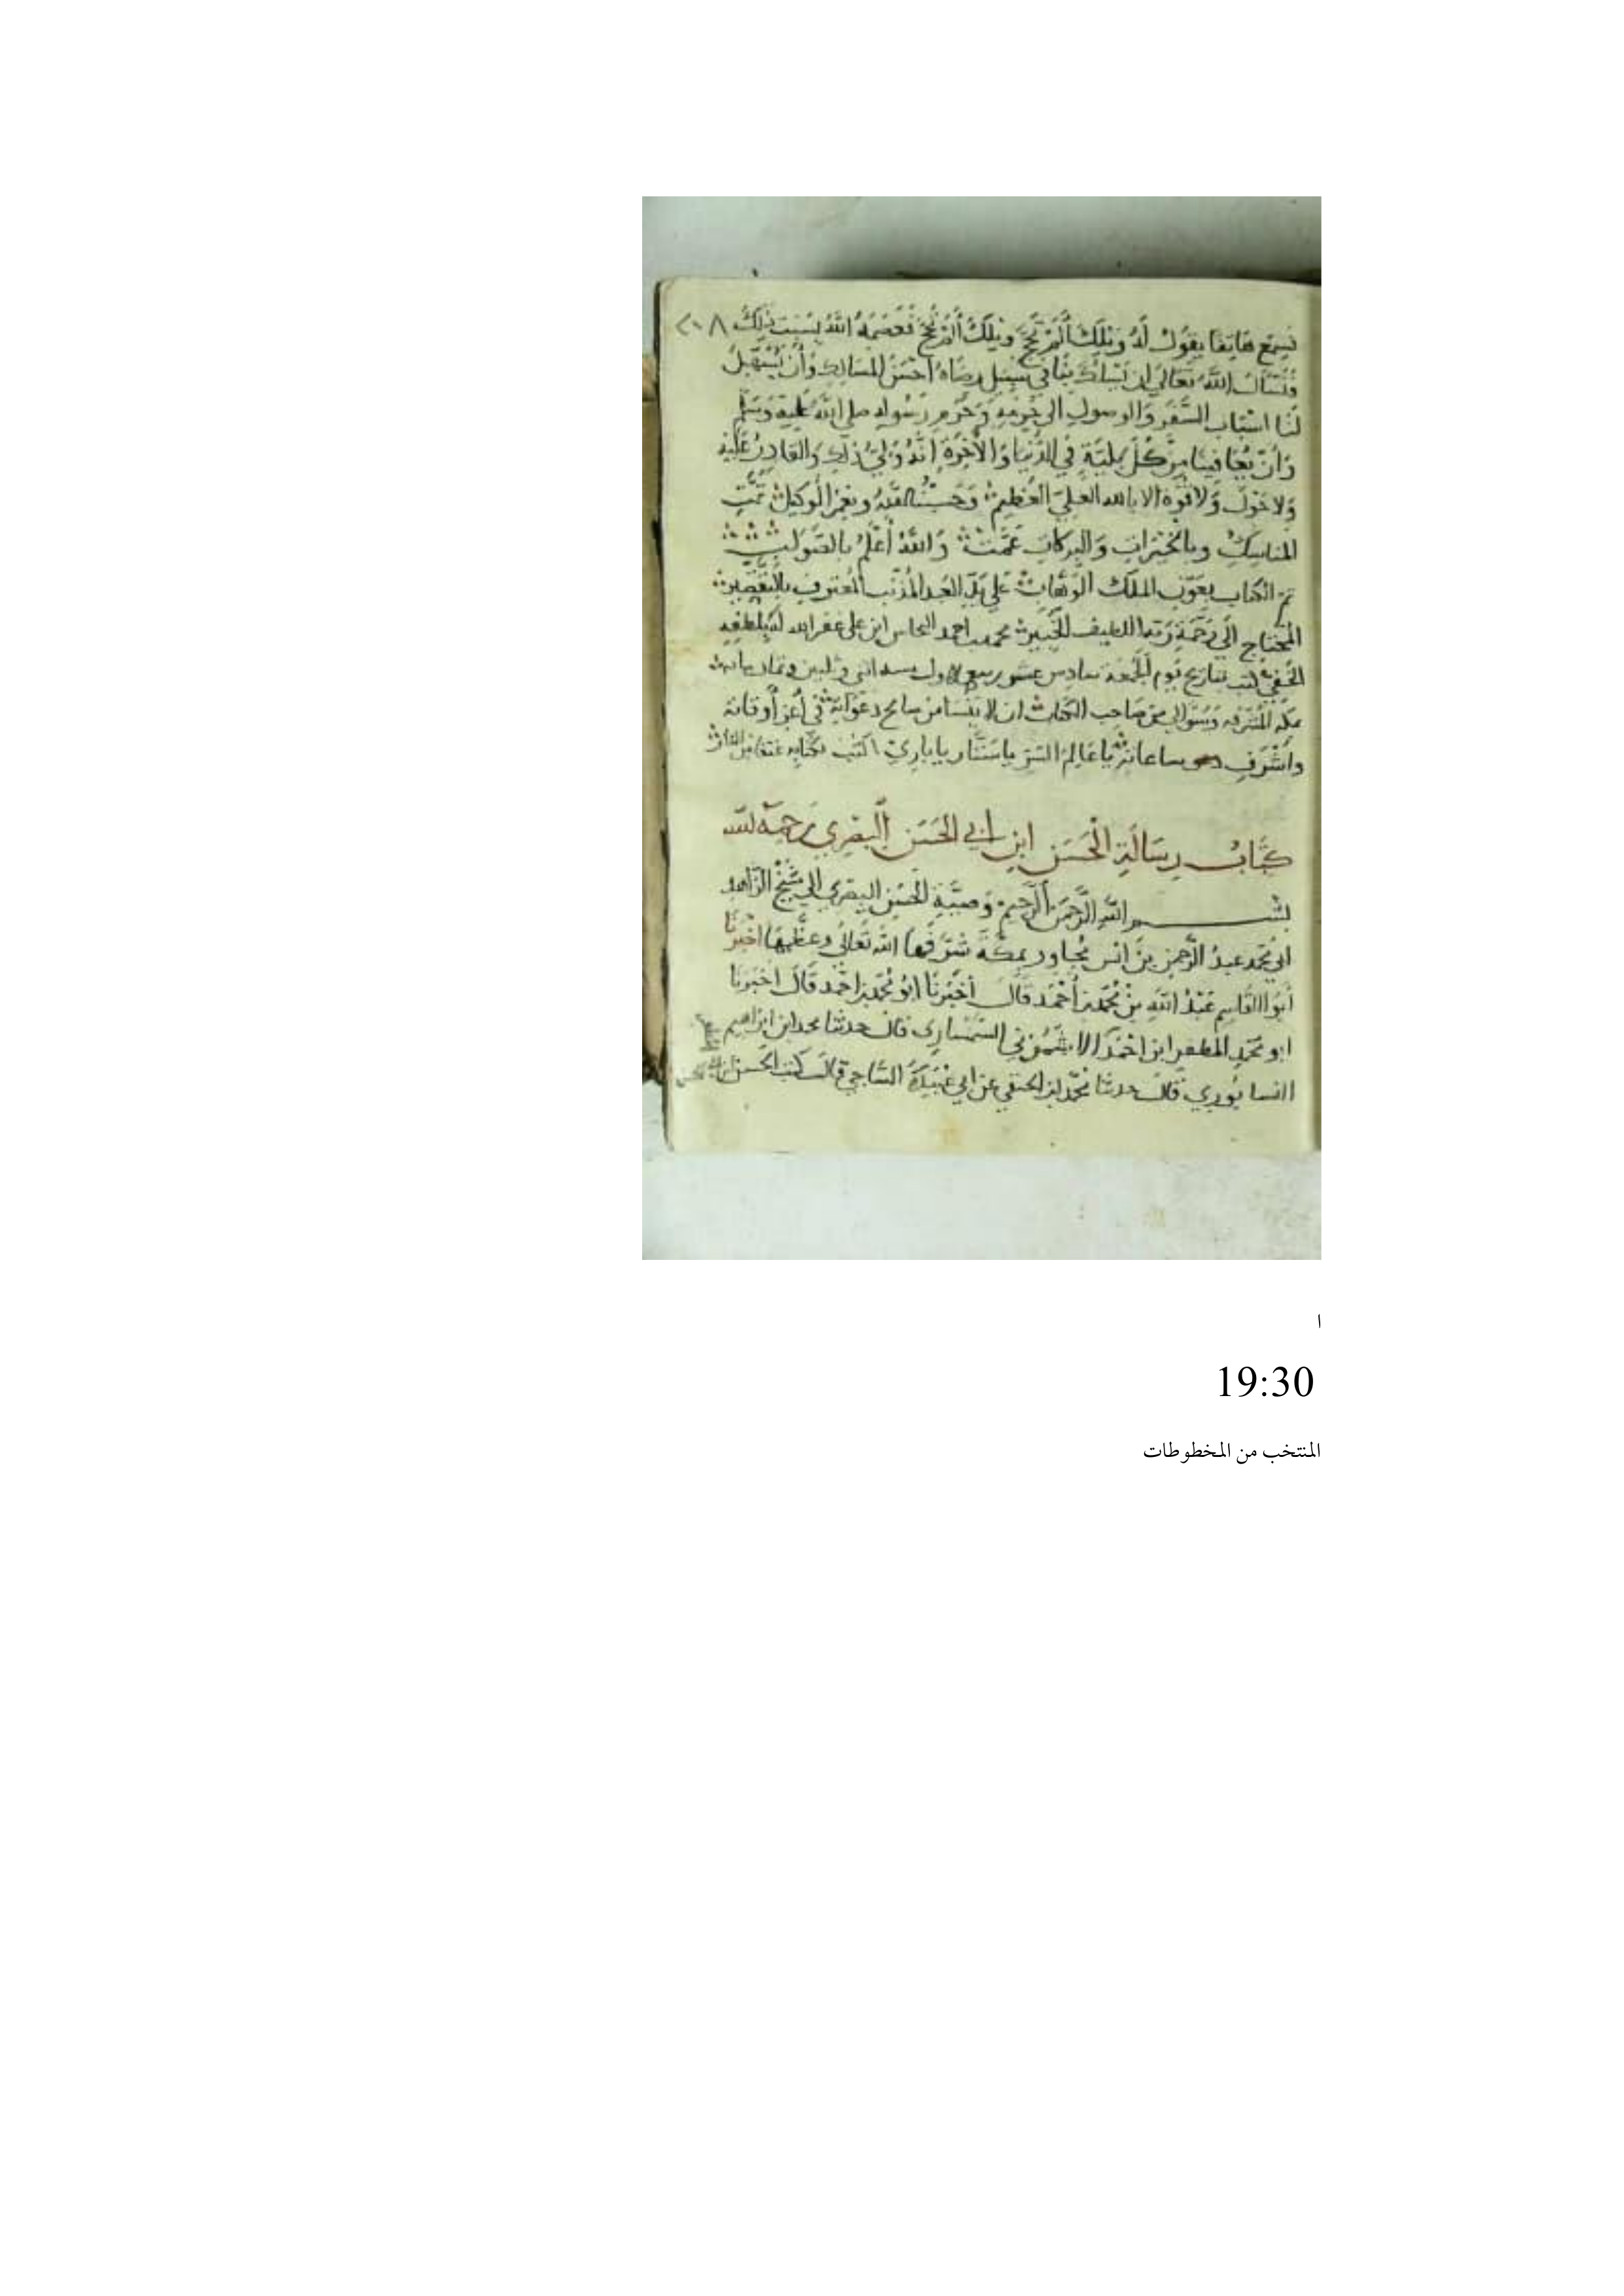 فسمع هاتفا يقول له ويلك ألم تحج ويلك ألم تحج فعصمه الله بسبب ذلك ٢٠٨
فنسأل الله تعالى ان يسلك بنا في سبيل رضاه احسن المسالك وأن يسهل
لنا اسباب السفر والوصول الى حرمه وحرم رسوله صلى الله عليه وسلم
وأن يعافينا من كل بلية في الدنيا والآخرة انه ولي ذلك والقادر عليه
ولا حول ولا قوة الا بالله العلي العظيم وحسبنا الله ونعم الوكيل تمت
المناسك وبالخيرات والبركات عمت والله أعلم بالصواب
تم الكتاب بعون الملك الوهاب على يد العبد المذنب المعترف بالتقصير
المحتاج الى رحمة ربه اللطيف الخبير محمد بن احمد النحاس ابن علي غفر الله له بلطفه
الخفي كتب بتاريخ يوم الجمعة سادس عشر ربيع الاول سنه اثني وثلثين وثمان مايه
بمكه المشرفه وسوالي من صاحب الكتاب ان لا ينسا من صالح دعواته في أعز أوقاته
وأشرف ساعاته يا عالم السر يا ستار يا باري اكتب لكتابه عتقا من النار
كتاب رسالة الحسن ابن ابي الحسن البصري رحمه الله
بسم الله الرحمن الرحيم وصية الحسن البصري الى شيخ الزاهد
ابي محمد عبد الرحمن بن انس مجاور بمكة شرفها الله تعالى وعظمها اخبرنا
أبو القاسم عبد الله بن محمد بن أحمد قال أخبرنا ابو محمد بن احمد قال اخبرنا
ابو محمد المظفر ابن احمد السمساري قال حدثنا محمد ابن ابراهيم
النسابوري قال حدثنا محمد ابن الحنفي عن ابي عبيدة الساجي قال كتب الحسن
ا
19:30
المنتخب من المخطوطات